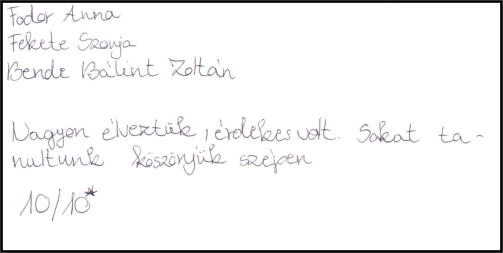 Fodor Anna
Fekete Szonja
Bende Bálint Zoltán
Nagyon élveztük, érdekes volt. Sokat ta-
nultunk köszönjük szépen
10/10*